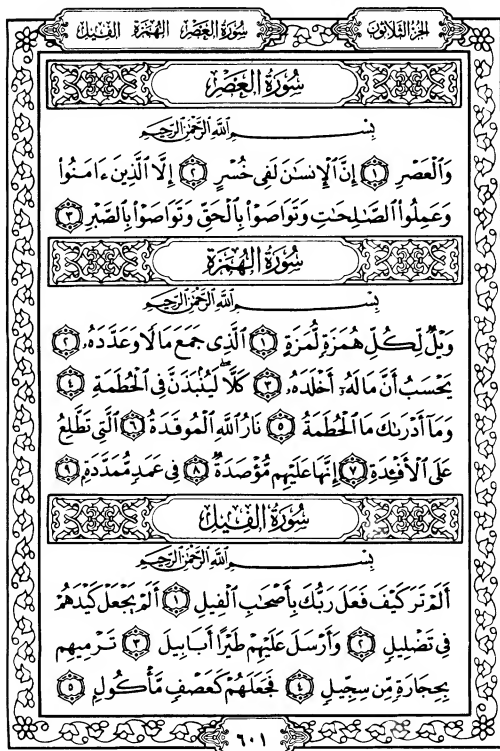 الجزء الثلاثون
سورة العصر الهمزة الفيل
سُورَةُ العَصْرِ
بِسْمِ ٱللَّهِ ٱلرَّحْمَٰنِ ٱلرَّحِيمِ
وَٱلْعَصْرِ ۝١ إِنَّ ٱلْإِنسَٰنَ لَفِى خُسْرٍ ۝٢ إِلَّا ٱلَّذِينَ ءَامَنُوا۟
وَعَمِلُوا۟ ٱلصَّٰلِحَٰتِ وَتَوَاصَوْا۟ بِٱلْحَقِّ وَتَوَاصَوْا۟ بِٱلصَّبْرِ ۝٣
سُورَةُ الهُمَزَةِ
بِسْمِ ٱللَّهِ ٱلرَّحْمَٰنِ ٱلرَّحِيمِ
وَيْلٌ لِّكُلِّ هُمَزَةٍ لُّمَزَةٍ ۝١ ٱلَّذِى جَمَعَ مَالًا وَعَدَّدَهُۥ ۝٢
يَحْسَبُ أَنَّ مَالَهُۥٓ أَخْلَدَهُۥ ۝٣ كَلَّا ۖ لَيُنۢبَذَنَّ فِى ٱلْحُطَمَةِ ۝٤
وَمَآ أَدْرَىٰكَ مَا ٱلْحُطَمَةُ ۝٥ نَارُ ٱللَّهِ ٱلْمُوقَدَةُ ۝٦ ٱلَّتِى تَطَّلِعُ
عَلَى ٱلْأَفْـِٔدَةِ ۝٧ إِنَّهَا عَلَيْهِم مُّؤْصَدَةٌ ۝٨ فِى عَمَدٍ مُّمَدَّدَةٍۭ ۝٩
سُورَةُ الفِيلِ
بِسْمِ ٱللَّهِ ٱلرَّحْمَٰنِ ٱلرَّحِيمِ
أَلَمْ تَرَ كَيْفَ فَعَلَ رَبُّكَ بِأَصْحَٰبِ ٱلْفِيلِ ۝١ أَلَمْ يَجْعَلْ كَيْدَهُمْ
فِى تَضْلِيلٍ ۝٢ وَأَرْسَلَ عَلَيْهِمْ طَيْرًا أَبَابِيلَ ۝٣ تَرْمِيهِم
بِحِجَارَةٍ مِّن سِجِّيلٍ ۝٤ فَجَعَلَهُمْ كَعَصْفٍ مَّأْكُولٍۭ ۝٥
٦٠١